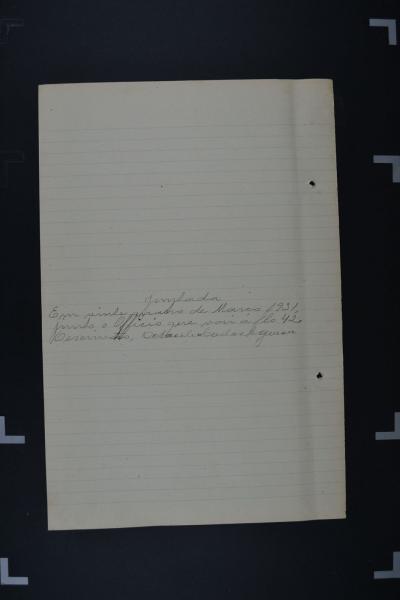 Juntada
Em vinte quatro de Março 1931,
junto o Officio que vai á fls 42.
O Escrivão,